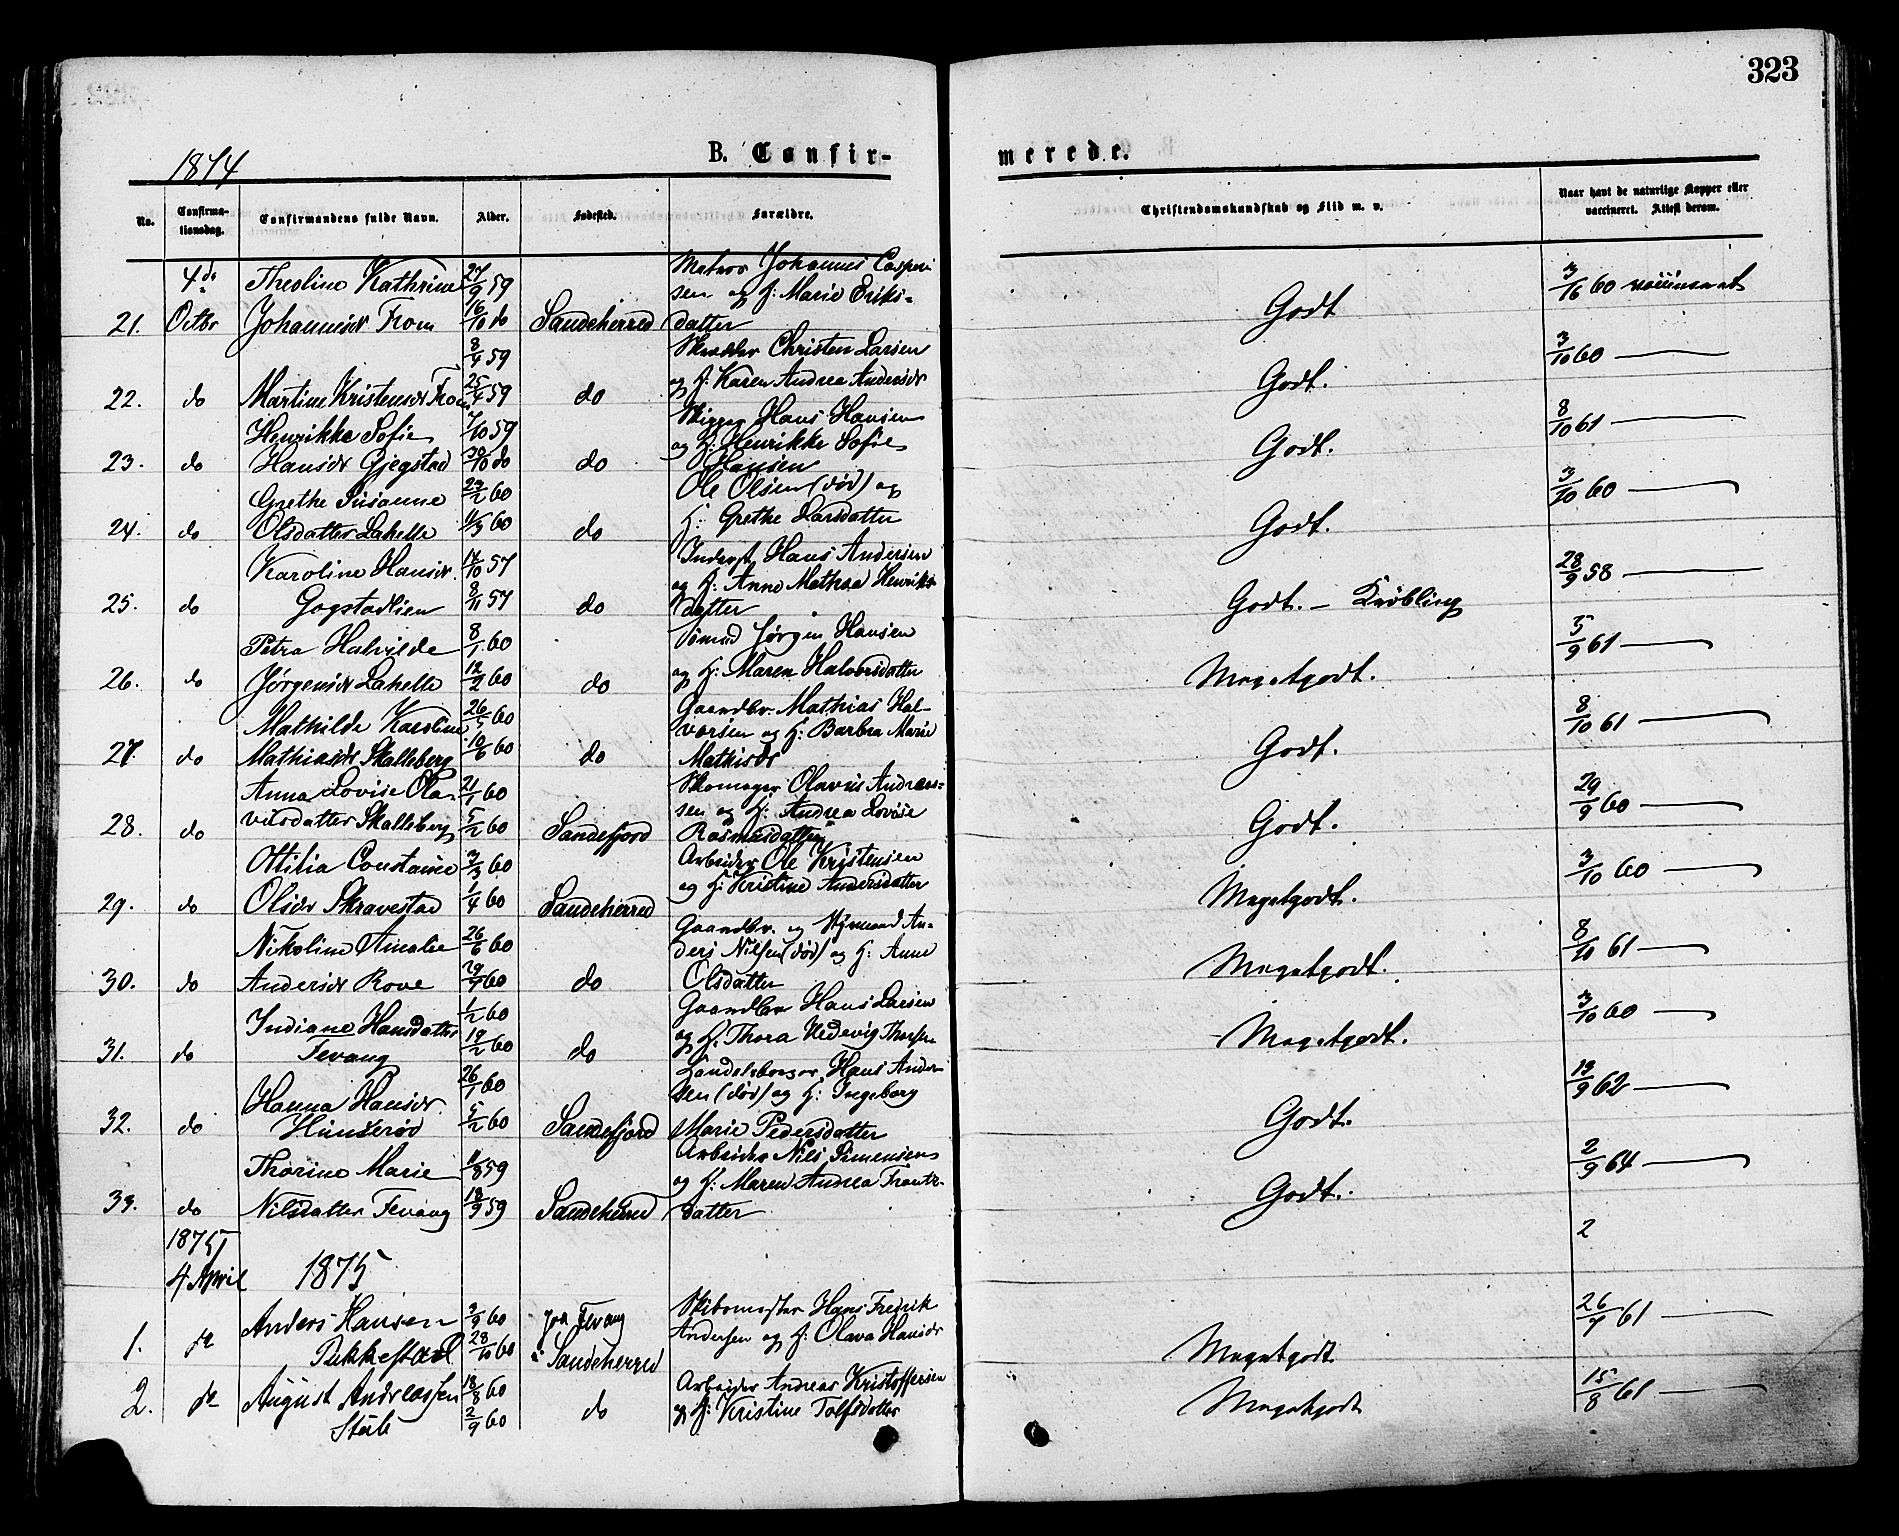 323
1874
B. Confirmerede.
No. Confirmationsdag. Confirmandens fulde Navn. Alder. Fødested. Forældre. Christendomskundskab og Flid m. v. Naar havt de naturlige Kopper eller vaccineret. Attest derom.
4de Theoline Kathrine 27/9 59 Matros Johannes Caspersen og H: Marie Eriks-
21. Octbr Johannesdr From 16/10 do Sandeherred datter Godt 3/6 60
8/4 59 Skrædder Christen Larsen
22. do Martine Kristensdr From 25/4 59 do og H: Karen Andrea Andersdr Godt. 3/10 60
Henrikke Sofie 7/10 59 Hans Hansen
og H: Henrikke Sofie
23. do Hansdr Gjegstad 30/10 do do Hansen Godt. 8/10 61
Grethe Susanne 22/2 60 Ole Olsen (død) og
24. do Olsdatter Lahelle 11/3 60 do H: Grethe Larsdatter Godt. 3/10 60
Karoline Hansdr. 14/10 57 Inderst Hans Andersen
og H: Anne Mathea Henriks-
25. do Gogstadlien 8/11 57 do datter Godt. – Krøbling 28/9 58
Petra Halvilde 8/1 60 Sømand Jørgen Hansen
26. do Jørgensdr Lahelle 12/2 60 do og H: Maren Halvorsdatter Megetgodt. 5/9 61
Mathilde Karoline 26/5 60 Gaardbr. Mathias Hal-
vorsen og H: Barbra Marie
27. do Mathiasdr Skalleberg 10/6 60 do Mathisdr Godt. 8/10 61
Anna Lovise Ola- 21/1 60 Skomager Olavus Andreas-
sen og H: Andrea Lovise
28. do vusdatter Skalleberg 5/2 60 Sandefjord Rasmusdatter Godt. 29/9 60
Ottilia Constance 3/3 60 Arbeider Ole Kristensen
29. do Olsdr Skravestad 1/4 60 Sandeherred og H: Kristine Andersdatter Megetgodt. 3/10 60
Nikoline Amalie 26/6 60 Gaardbr. og Styrmand An-
ders Nilsen (død) og H: Anne
30. do Andersdr Rove 29/7 60 do Olsdatter Megetgodt. 8/10 61
Indiane Hansdatter 1/2 60 Gaardbr Hans Larsen
31. do Fevang 19/2 60 do og H. Thora Hedevig Thorsen Megetgodt. 3/10 60
Hanna Hansdr. 26/1 60 Hans Ander-
sen (død) og H: Ingeborg
32. do Hunserød 5/2 60 Sandefjord Marie Pedersdatter Godt. 19/9 62
Thorine Marie 11/8 59 Arbeider Nils Simensen
og H: Maren Andrea Frants-
33. do Nilsdatter Fevang 18/9 59 Sandeherred datter Godt. 2/9 64
1875 2
4 April 1875
Anders Hansen 9/9 60 paa Fevang Skibsmester Hans Fredrik
1. do Pukkestad 28/10 60 i Sandeherred Andersen og H: Olava Hansdr Megetgodt 26/7 61
2. do August Andreassen 18/8 60 do Arbeider Andreas Kristoffersen Megetgodt 15/8 61
Stub 2/9 60 og H: Kristine Tolfsdatter